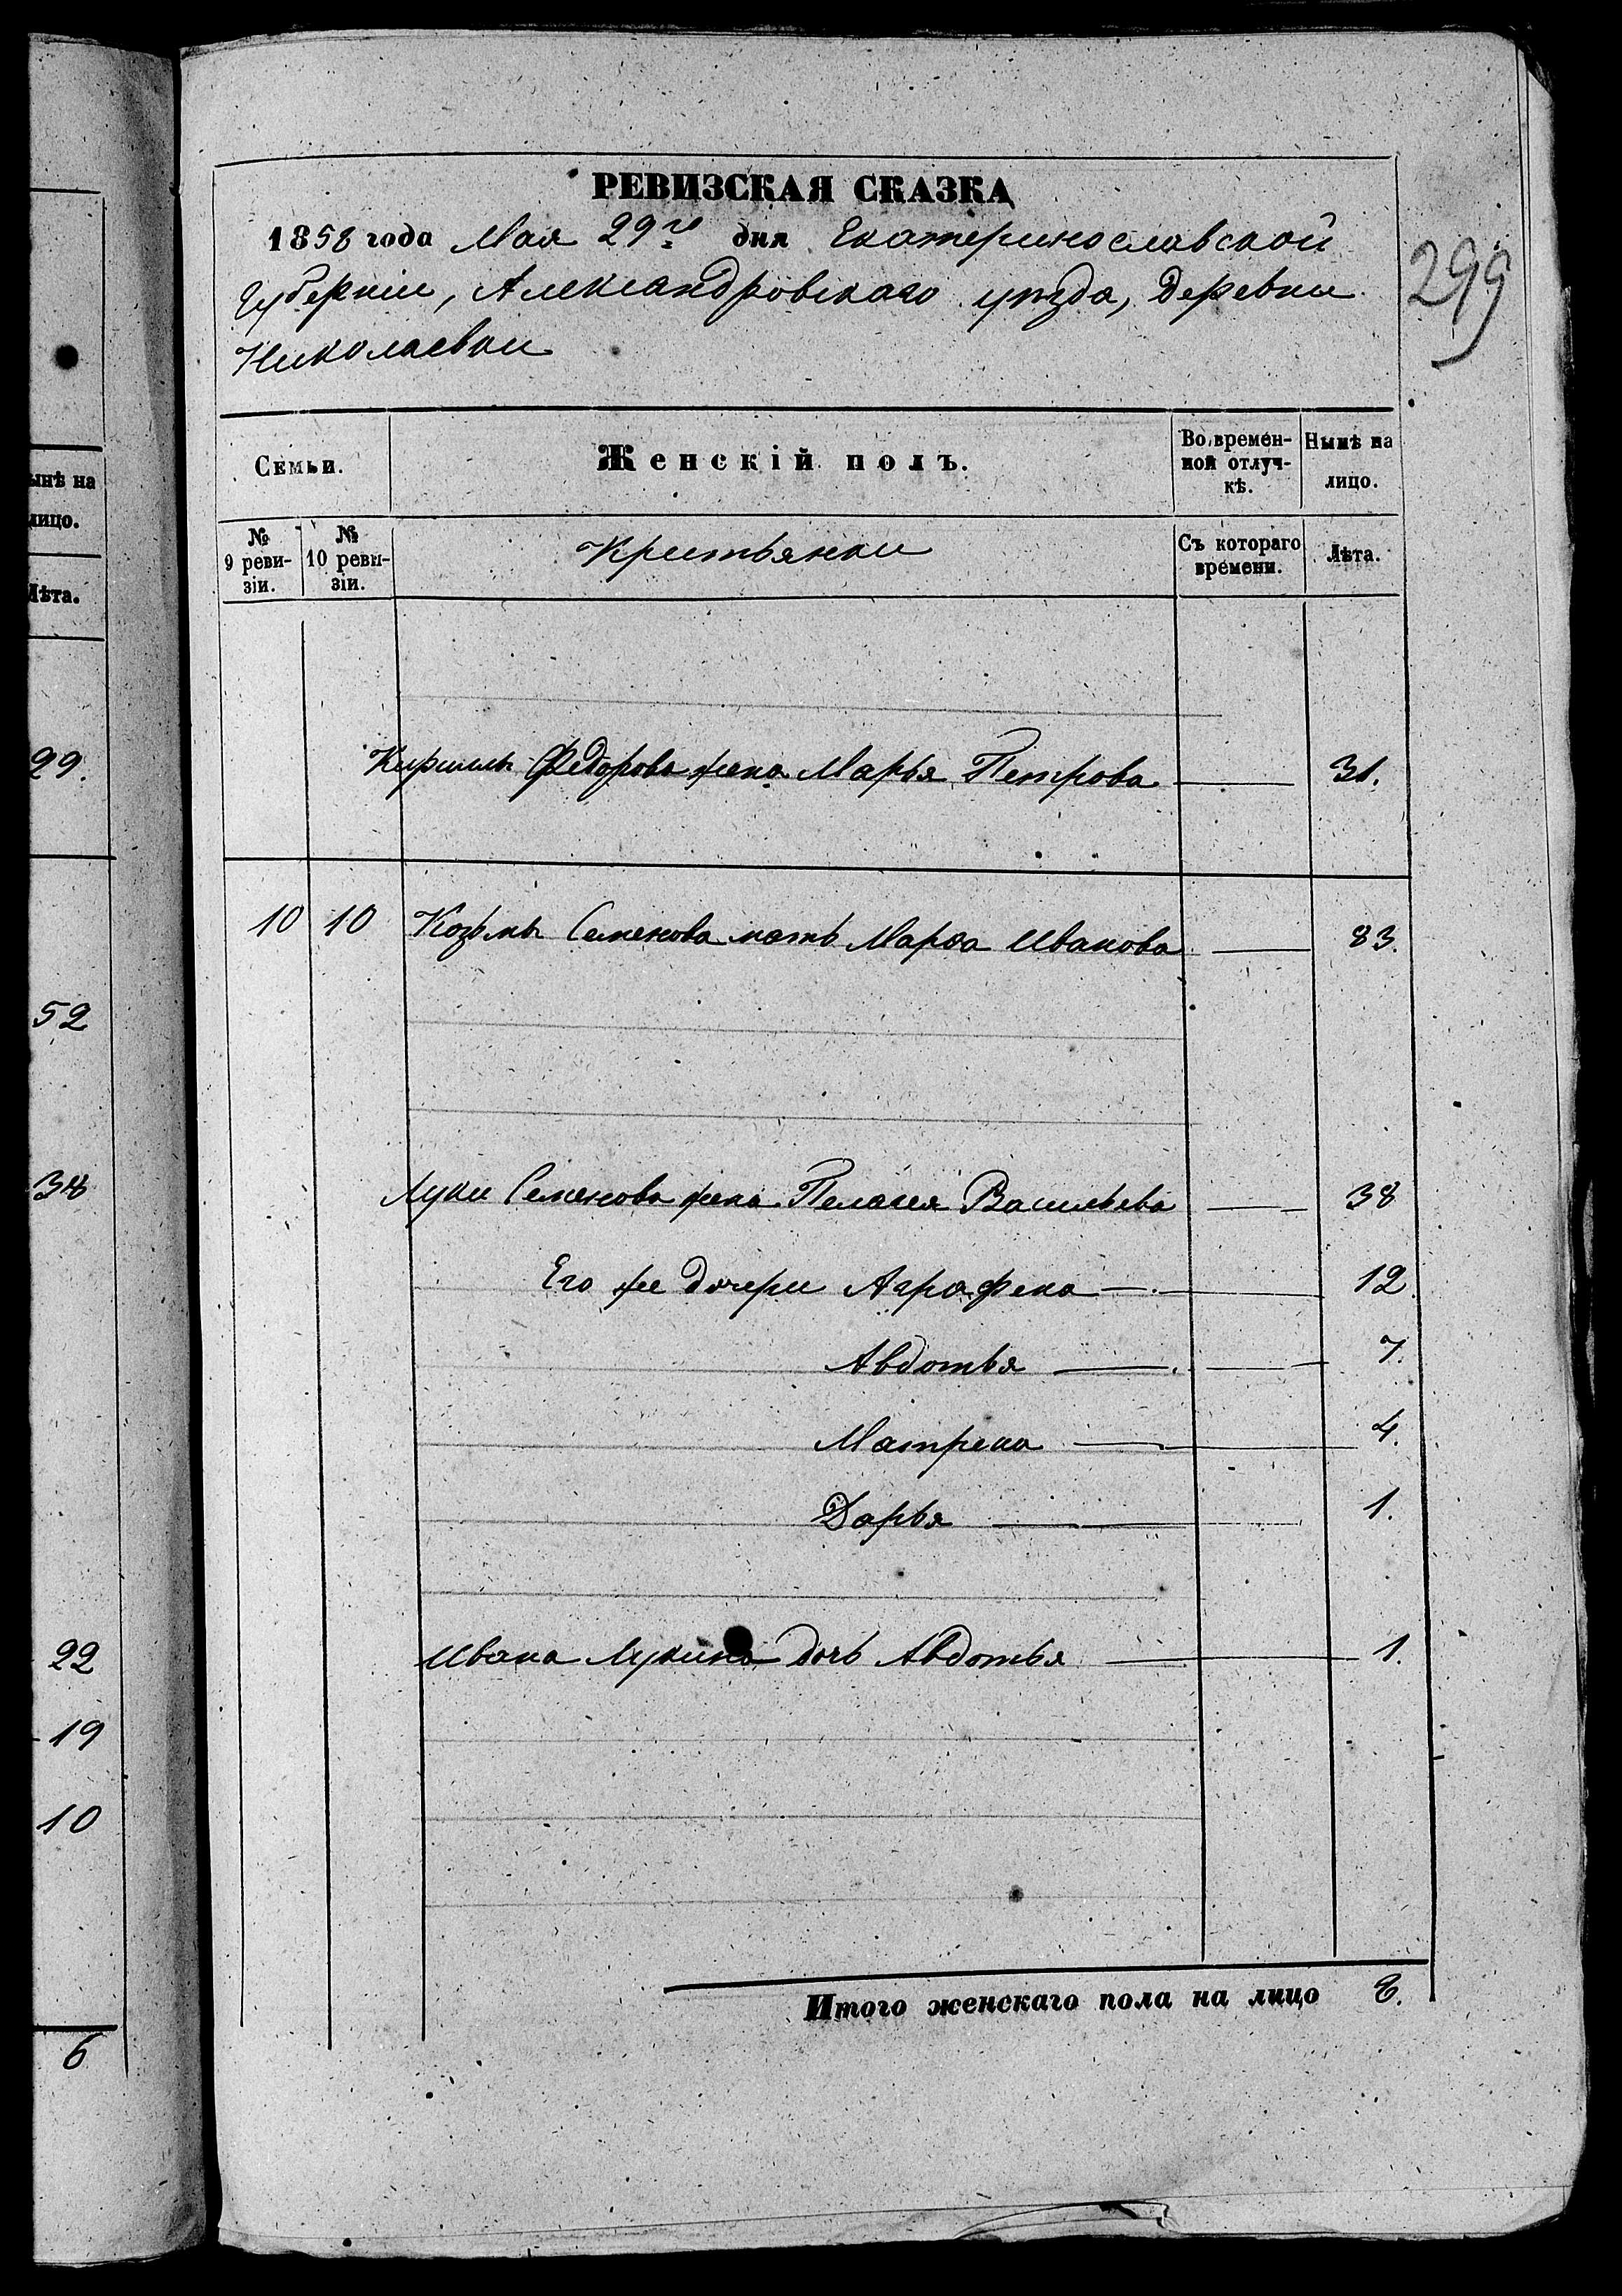 РЕВИЗСКАЯ СКАЗКА
1858 года Мая 29го дня Екатеринославской
Губерніи, Александровскаго уѣзда, деревни
Николаевки
299
Семьи.
Женскій полъ.
Во времен-
ной отлуч-
кѣ.
Нынѣ на
лицо.
№
9 реви-
зіи.
№
10 реви-
зіи.
Крестьянки
Съ котораго
времени.
Лѣта.
Кирилы Федорова жена Марья Петрова — 31.
10 10 Козьмы Семенова мать Марѳа Иванова — 83.
Луки Семенова жена Пелагея Васильева — 38
Его же дочери Аграфена — 12
Авдотья — 7.
Матрена — 4.
Дарья — 1.
Ивана Лукина дочь Авдотья — 1.
Итого женскаго пола на лицо 8.
ынѣ на
лицо.
Лѣта.
29.
52
34
22
19
10
6